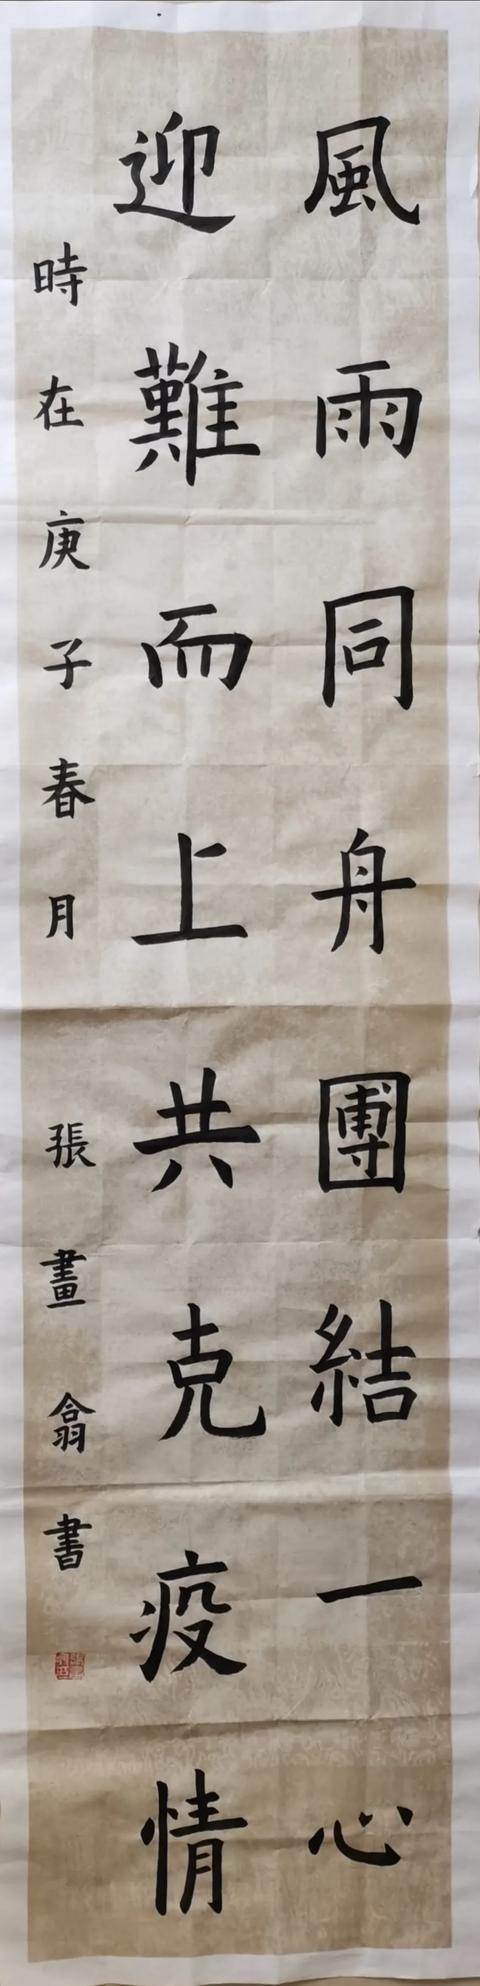 風雨同舟團結一心
迎難而上共克疫情
時在庚子春月 張畫翕書